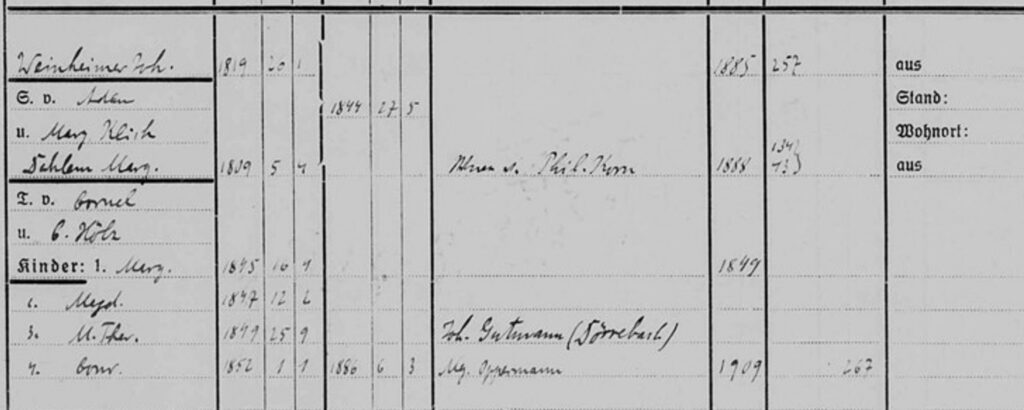 Weinheimer Joh. 1819 26 1 1885 257 aus
S. v. Adam 1844 27 5 Stand:
u. Marg Klich Wohnort:
Dahlem Marg. 1809 5 4 v. Phil. Korn 1888 134 13 aus
T. v. Cornel
u. C. Hölz
Kinder: 1. Marg. 1845 16 4 1849
2. Magd. 1847 12 2
3. M. Ther. 1849 25 9 Joh. Gutmann (Dörrebach)
4. Conr. 1852 1 1 1886 6 3 Mg. Oppermann 1909 267